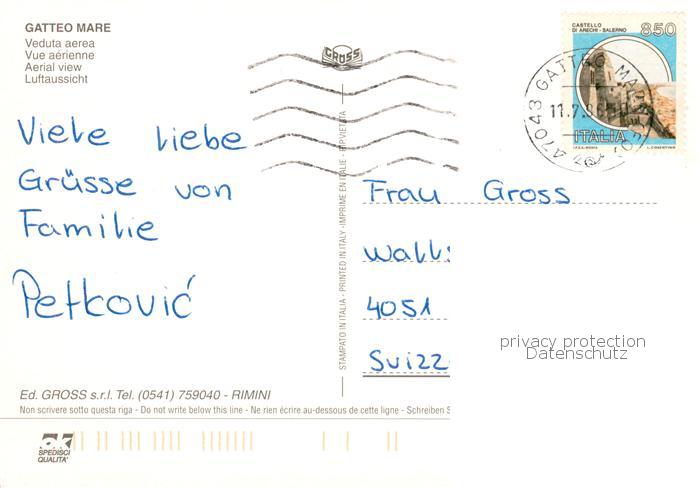 GATTEO MARE
Veduta aerea
Vue aérienne
Aerial view
Luftaussicht
GROSS
CASTELLO
DI ARECHI - SALERNO
850
ITALIA
I.P.Z.S. - ROMA
47043 GATTEO MARE
11.7.9
Viele liebe
Grüsse von
Familie
Petković
STAMPATO IN ITALIA - PRINTED IN ITALY - IMPRIME EN ITALIE - RIP. VIETATA
Frau Gross
4051
privacy protection
Datenschutz
Ed. GROSS s.r.l. Tel. (0541) 759040 - RIMINI
Non scrivere sotto questa riga - Do not write below this line - Ne rien écrire au-dessous de cette ligne - Schreiben S
ok
SPEDISCI
QUALITA'